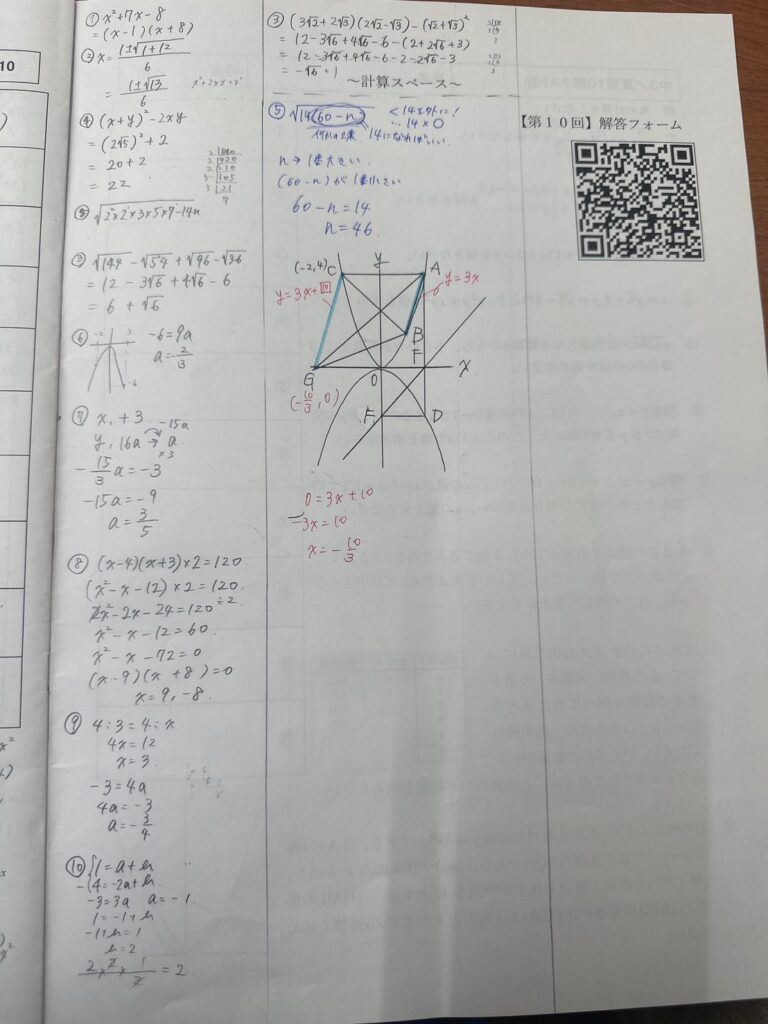 10
① x²+7x-8
= (x-1)(x+8)
② x = (1±√(1+12))/6
= (1±√13)/6
④ (x+y)² - 2xy
= (2√5)² + 2
= 20+2
= 22
⑤ √(2×2×3×5×7-14n)
③ √144 - √54 + √96 - √36
= 12 - 3√6 + 4√6 - 6
= 6 + √6
⑥ -6 = 9a
a = 2/3
⑦ x, +3
-15a
y, 16a → a
×3
-15/3 a = -3
-15a = -9
a = 3/5
⑧ (x-4)(x+3)×2=120
(x²-x-12)×2=120
2x²-2x-24=120 ÷2
x²-x-12=60
x²-x-72=0
(x-9)(x+8)=0
x=9, -8
⑨ 4:3=4:x
4x=12
x=3
-3=4a
4a=-3
a=-3/4
⑩ {1=a+b
-(4=-2a+b
-3=3a a=-1
1=-1+b
-1+b=1
b=2
2×2×1/2 = 2
③ (3√2+2√3)(2√2-√3)-(√2+√3)²
= 12-3√6+4√6-6-(2+2√6+3)
= 12-3√6+4√6-6-2-2√6-3
= -√6+1
～計算スペース～
⑤ √14(60-n)
<14を外に!
14×0
何かの2乗
14になればいい
n→1番大きい
(60-n)が1番小さい
60-n=14
n=46
(-2,4) C
y
A
y=3x+10
y=3x
B
F
G
O
x
(-10/3, 0)
F
D
0=3x+10
-3x=10
x=-10/3
【第１０回】解答フォーム